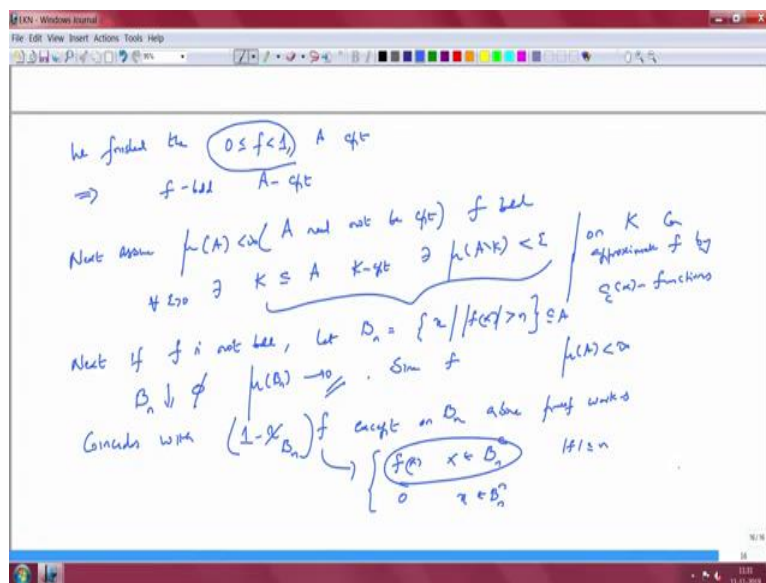 LKN - Windows Journal
File Edit View Insert Actions Tools Help
We finished the 0 ≤ f < 1, A cpt
⇒ f - bdd A - cpt
Next assume μ(A) < ∞ ( A need not be cpt) f bdd
∀ ε>0 ∃ K ⊆ A K-cpt ∋ μ(A\K) < ε
on K can
approximate f by
C_c(X) - functions
Next if f is not bdd, Let B_n = { x | |f(x)| > n } ⊆ A
B_n ↓ ∅ μ(B_n) → 0. Since f μ(A) < ∞
Coincides with (1 - χ_{B_n}) f except on B_n above proof works
{ f(x) x ∈ B_n^c |f| ≤ n
0 x ∈ B_n
16/16
16
11:31